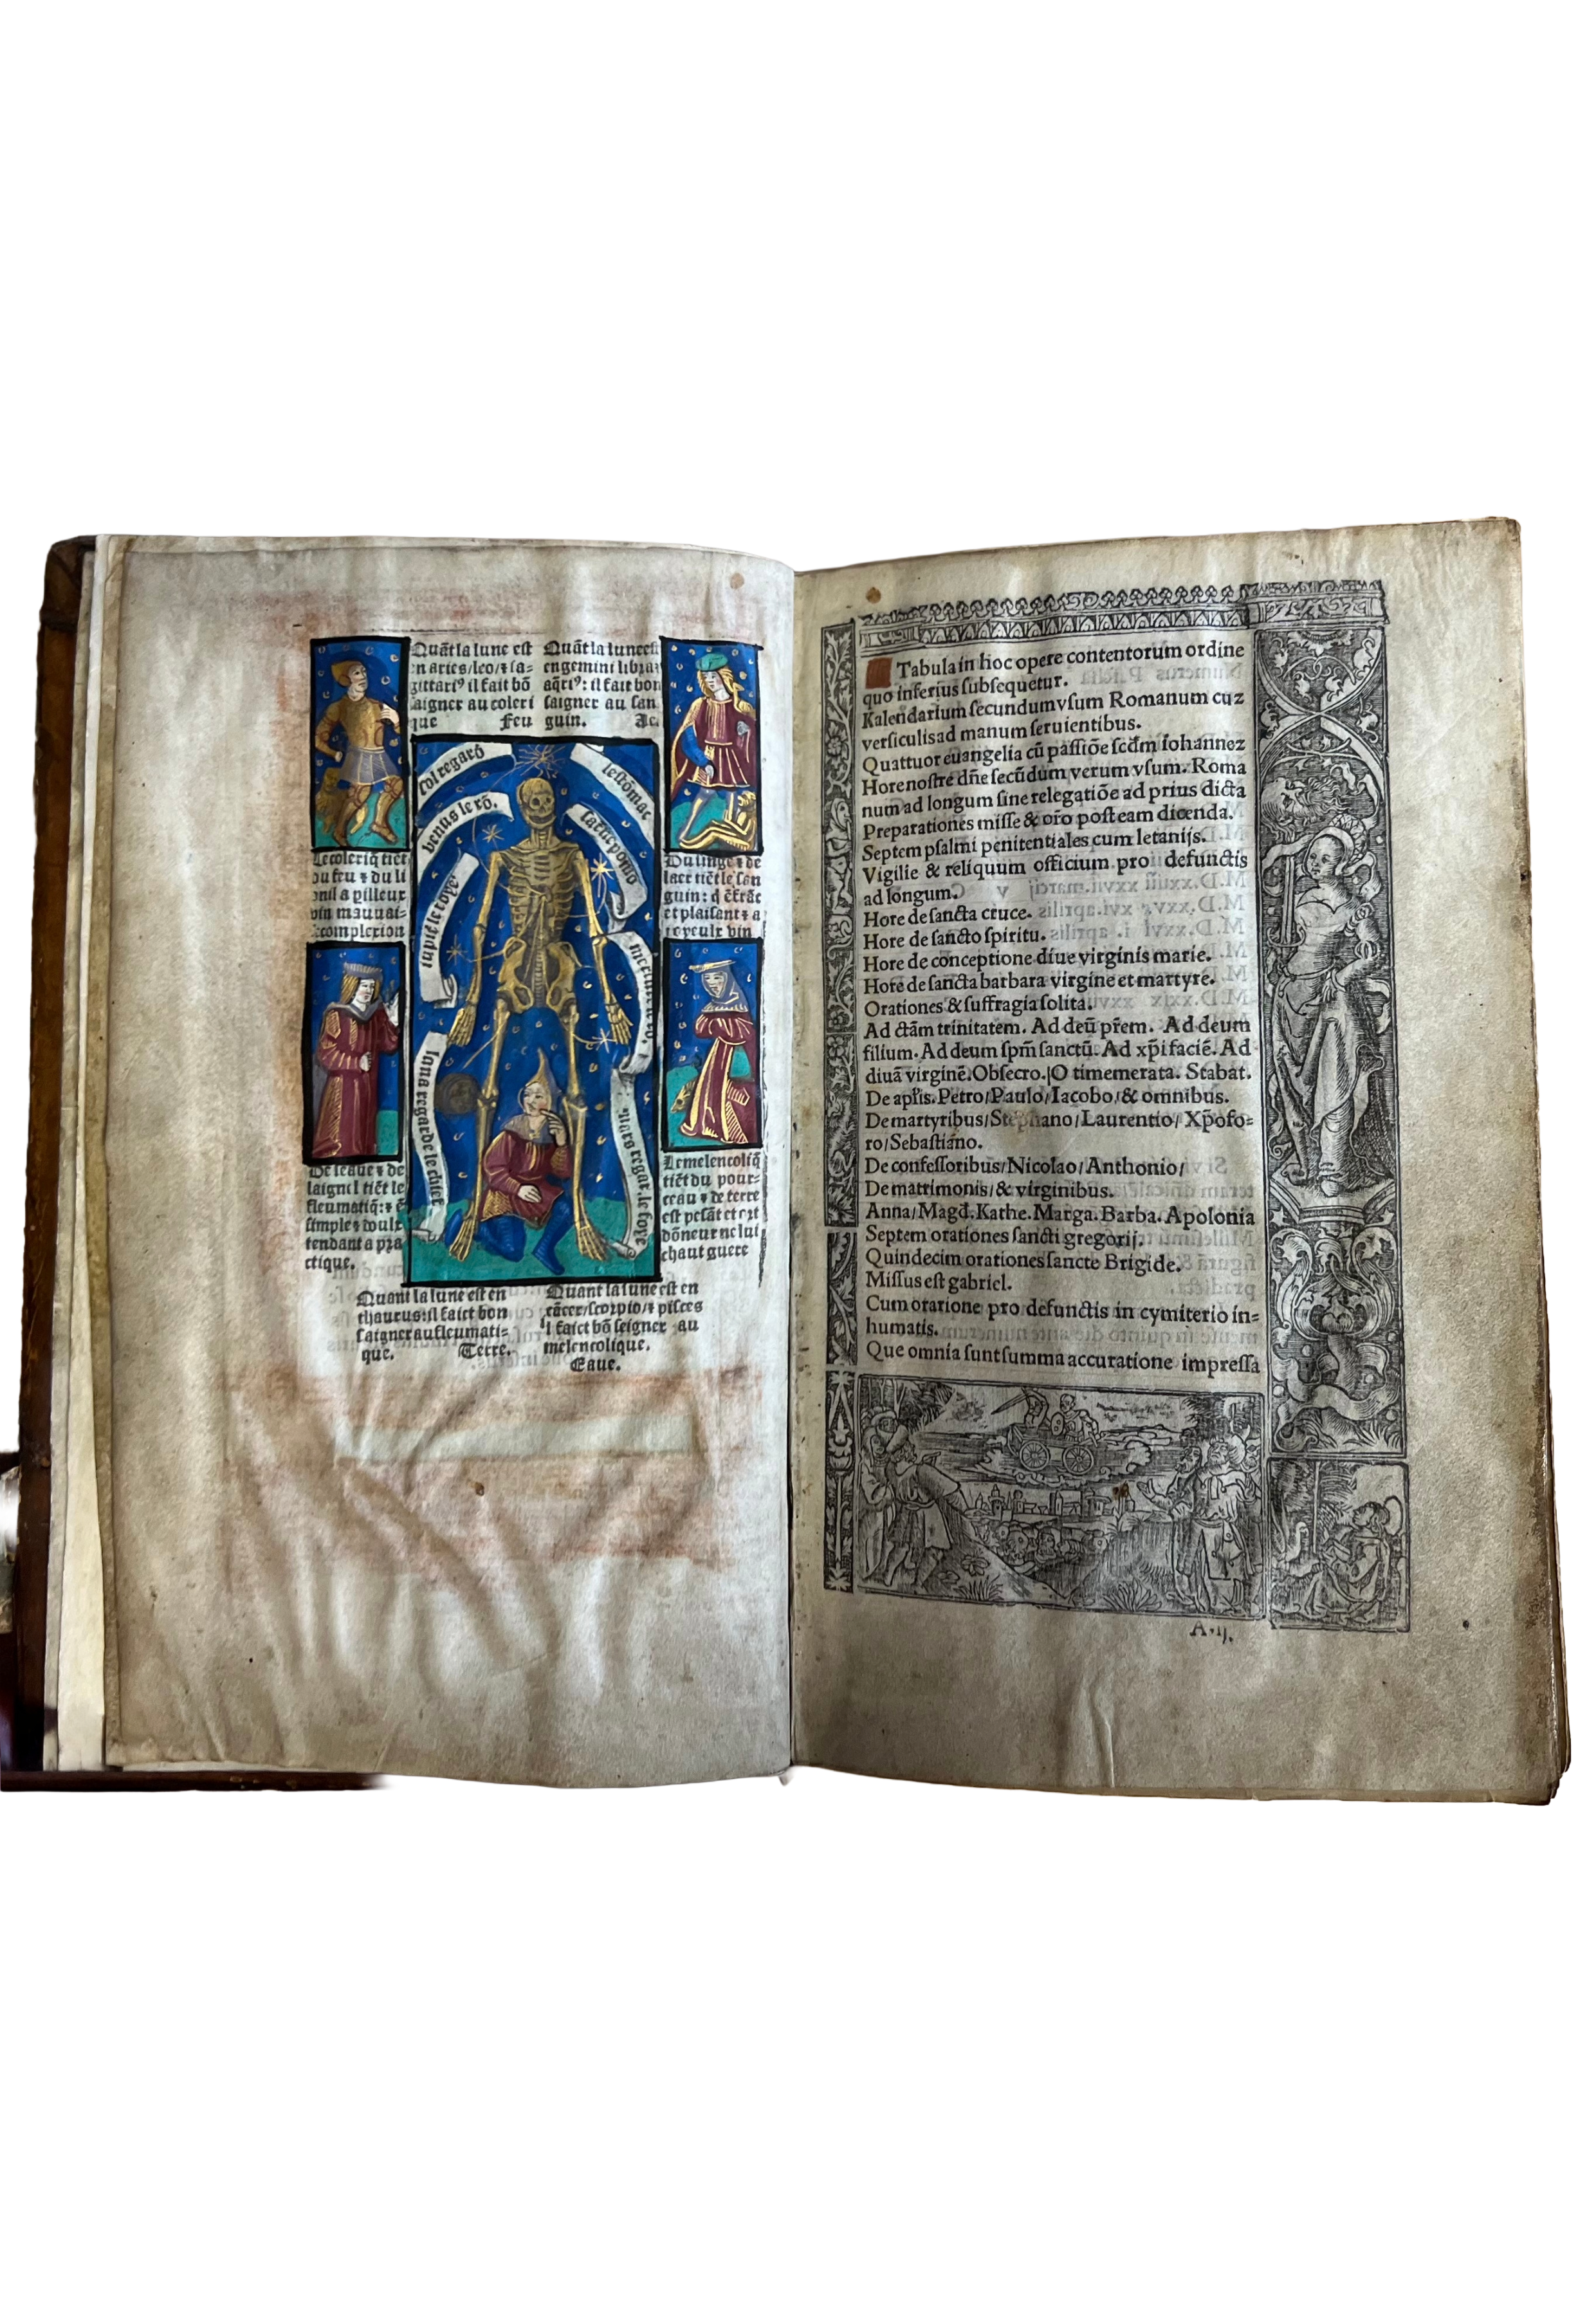 Quãt la lune est
en aries/leo/⁊ sa-
gittariꝰ il fait bõ
saigner au coleri
que Feu
Quãt la lune est
en gemini libra⁊
aq̃riꝰ: il fait bon
saigner au san
guin. Ac.
sol regard
lestõmac
venus le rõ.
iupiter
mercure
luna regarde le chief
mars regar. le foye
Le coleriq̃ tiẽt
du feu ⁊ du li
vin mauuai-
complexion
Du singe ⁊ de
laer tiẽt le san
guin: q̃ ẽ frãc
et plaisant ⁊ a
vin
De leaue ⁊ de
laignel tiẽt le
fleumatiq̃: ⁊ ẽ
simple ⁊ doulx
tendant a pra
ctique.
Le melencoliq̃
tiẽt du pour-
ceau ⁊ de terre
est pesãt et
dõneur ne lui
chaut guere
Quant la lune est en
thaurus: il faict bon
saigner au fleumati-
que. Terre.
Quant la lune est en
cãcer/scorpio/⁊ pisces
il faict bõ seigner au
melencolique.
Eaue.
Tabula in hoc opere contentorum ordine
quo inferius subsequetur.
Kalendarium secundum vsum Romanum cuz
versiculis ad manum seruientibus.
Quattuor euangelia cũ passiõe scd̃m iohannez
Hore nostre dñe secũdum verum vsum. Roma
num ad longum sine relegatiõe ad prius dicta
Preparationes misse & orõ posteam dicenda.
Septem psalmi penitentiales cum letanijs.
Vigilie & reliquum officium pro defunctis
ad longum.
Hore de sancta cruce.
Hore de sancto spiritu.
Hore de conceptione diue virginis marie.
Hore de sancta barbara virgine et martyre.
Orationes & suffragia solita.
Ad ctãm trinitatem. Ad deũ pr̃em. Ad deum
filium. Ad deum spm̃ sanctũ. Ad xp̃i faciẽ. Ad
diuã virginẽ. Obsecro. O timemerata. Stabat.
De apl̃is. Petro/Paulo/Iacobo/& omnibus.
De martyribus/Stephano/Laurentio/Xp̃ofo=
ro/Sebastiano.
De confessoribus/Nicolao/Anthonio/
De matrimonis/& virginibus.
Anna/Magd̃. Kathe. Marga. Barba. Apolonia
Septem orationes sancti gregorij.
Quindecim orationes sancte Brigide.
Missus est gabriel.
Cum oratione pro defunctis in cymiterio in=
humatis.
Que omnia sunt summa accuratione impressa
A.ij.